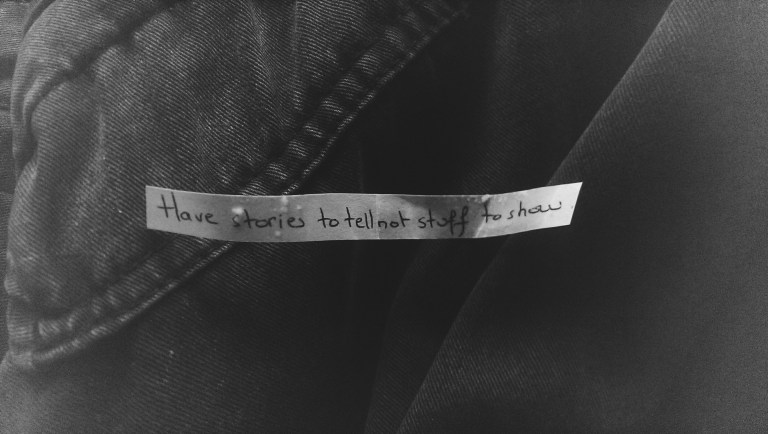 Have stories to tell not stuff to show.